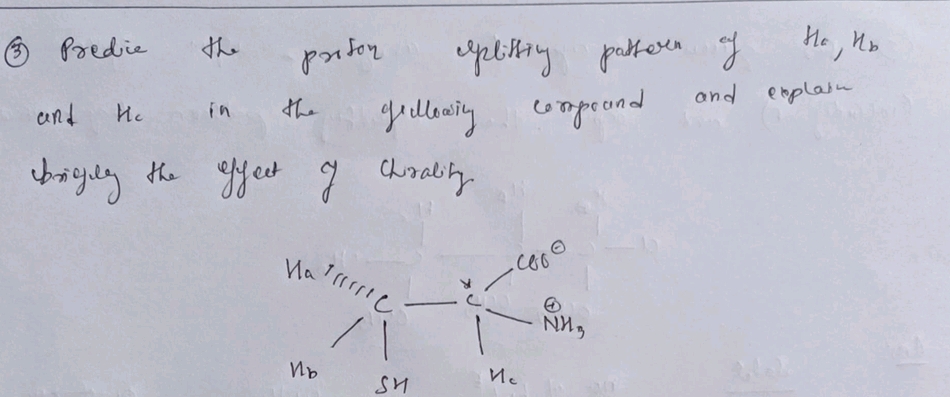 ③ Predic the proton splitting pattern of Ha, Hb
and Hc in the following compound and explain
briefly the effect of Chirality
Ha C * C COO⊖
⊕
NH3
Hb SH Hc